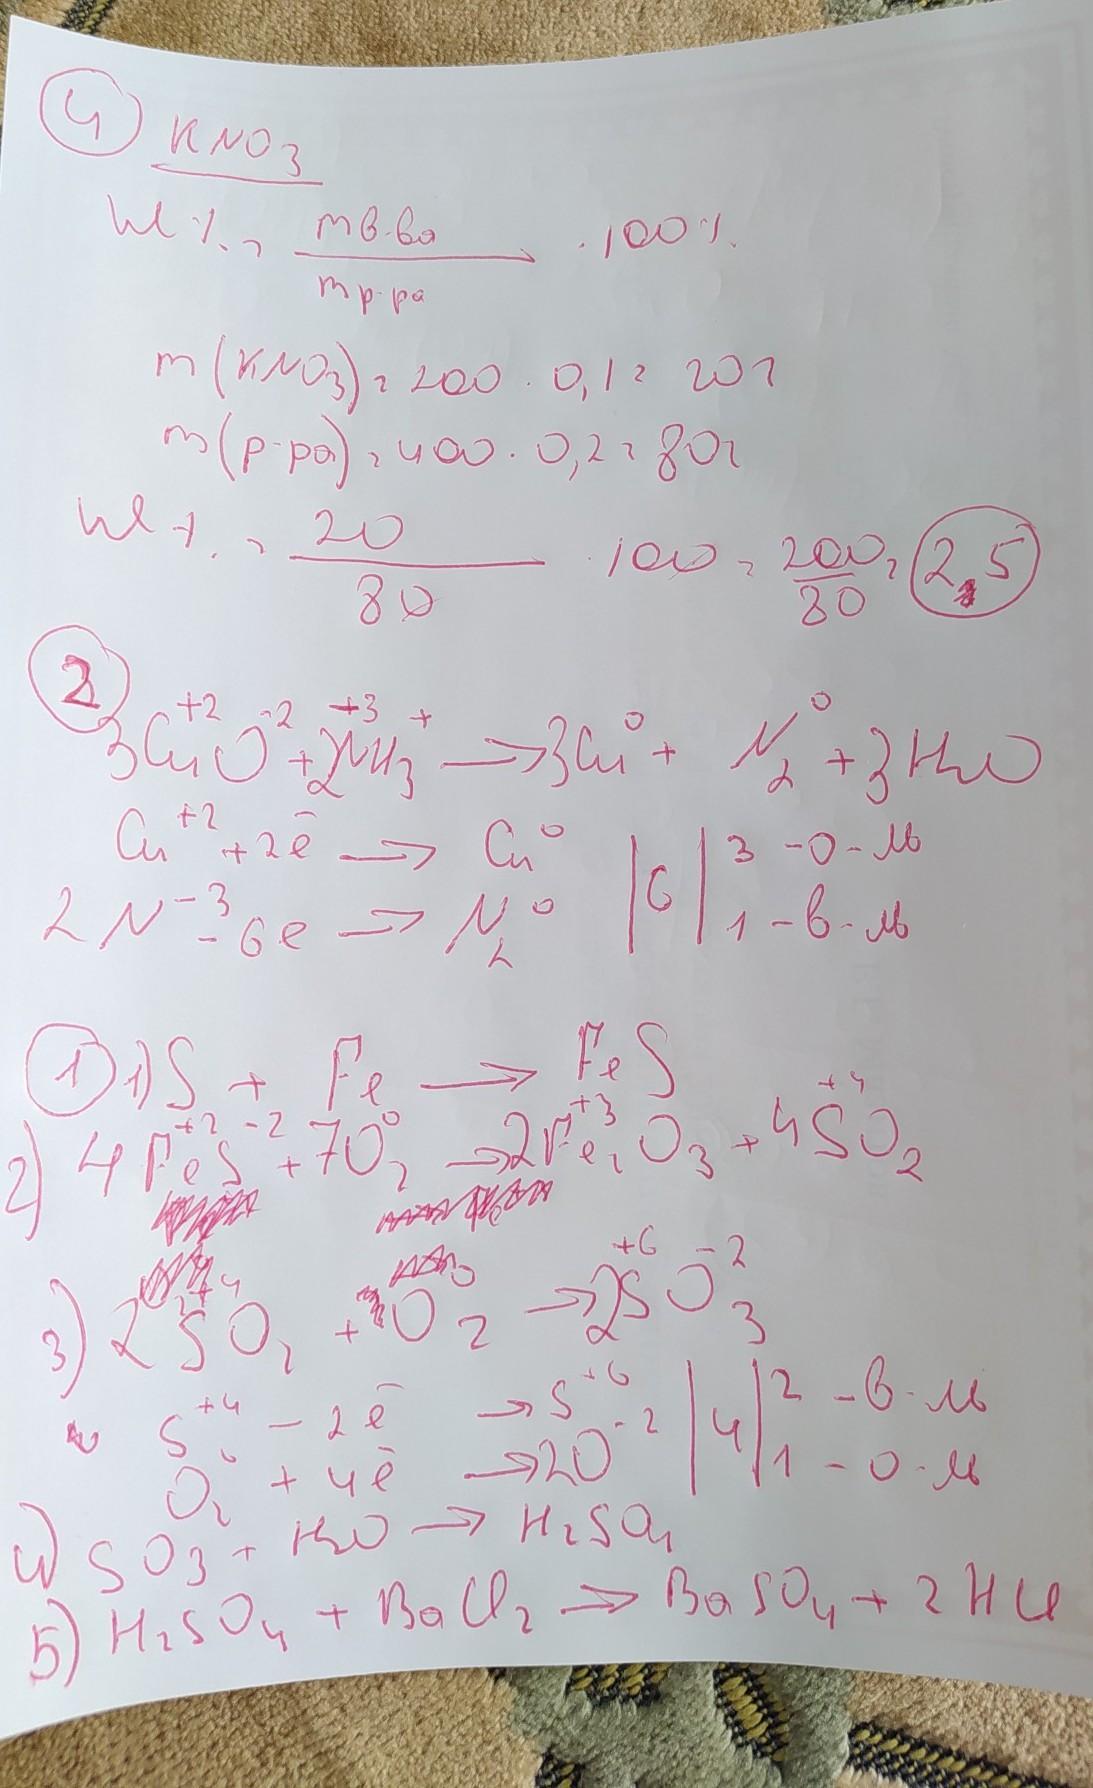 4 KNO3
W% = mв-ва / mр-ра · 100%
m(KNO3) = 200 · 0,1 = 20г
m(р-ра) = 400 · 0,2 = 80г
W% = 20 / 80 · 100 = 200 / 80 = 2,5
2
3Cu⁺²O⁻² + 2N⁺³H₃⁺ → 3Cu⁰ + N₂⁰ + 3H₂O
Cu⁺² + 2ē → Cu⁰ | 6 | 3 - о-ль
2N⁻³ - 6e → N₂⁰ | 6 | 1 - в-ль
1 1) S + Fe → FeS
2) 4Fe⁺²S⁻² + 7O₂⁰ → 2Fe₂⁺³O₃ + 4S⁺⁴O₂
3) 2S⁺⁴O₂ + O₂⁰ → 2S⁺⁶O₃⁻²
S⁺⁴ - 2ē → S⁺⁶ | 4 | 2 - в-ль
O₂⁰ + 4ē → 2O⁻² | 4 | 1 - о-ль
4) SO₃ + H₂O → H₂SO₄
5) H₂SO₄ + BaCl₂ → BaSO₄ + 2HCl